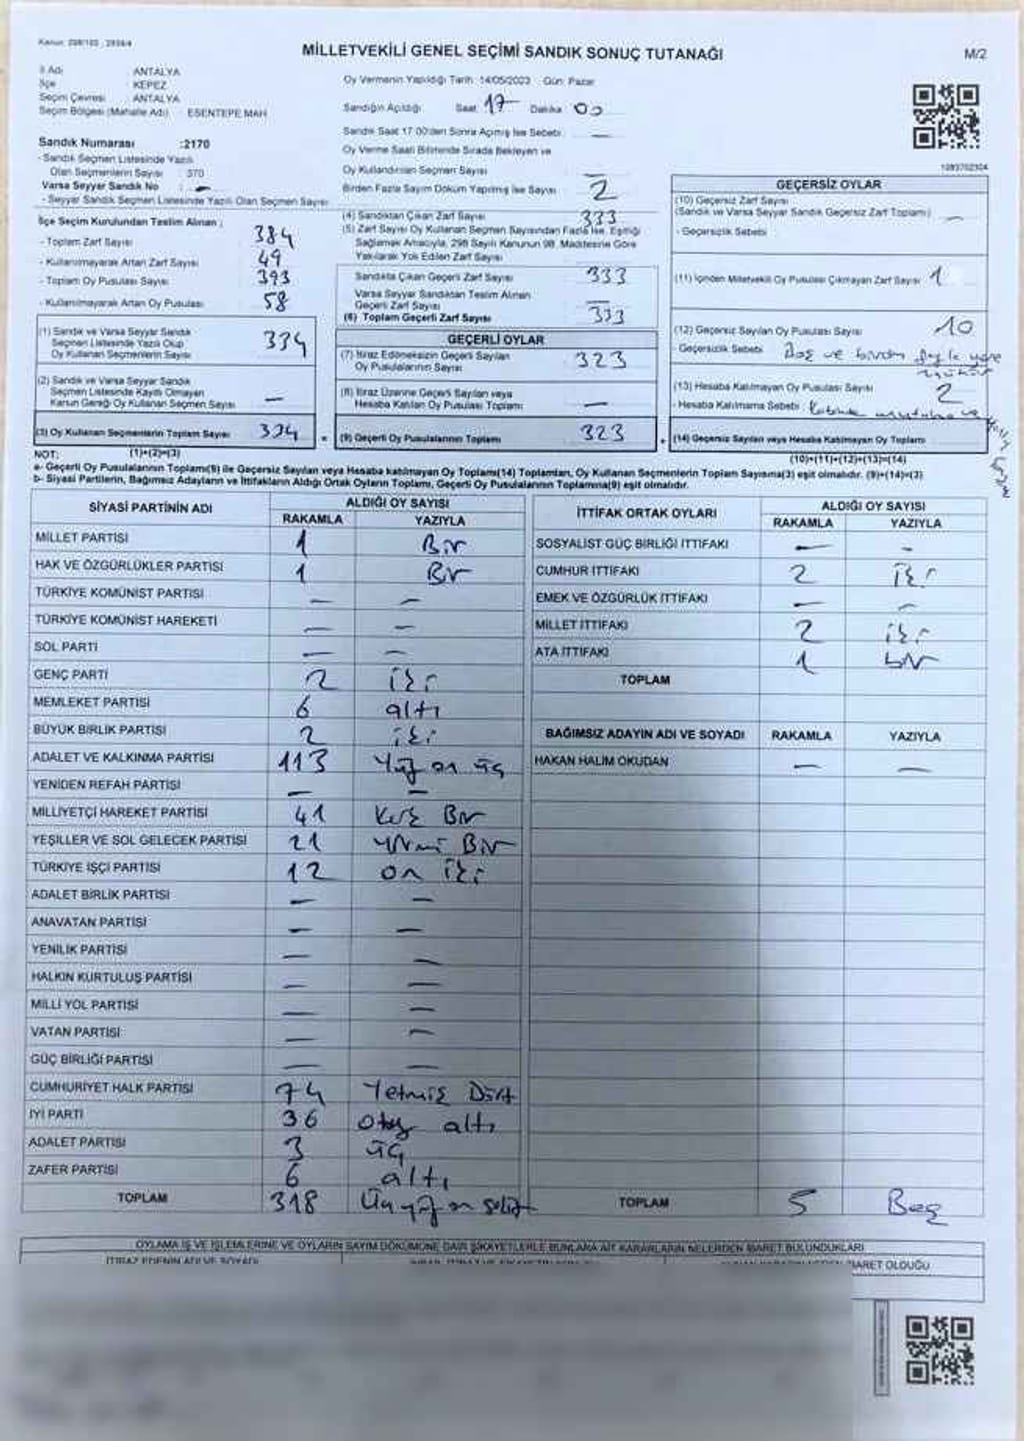 Kanun: 298/105 , 2839/4
MİLLETVEKİLİ GENEL SEÇİMİ SANDIK SONUÇ TUTANAĞI
M/2
İl Adı : ANTALYA
İlçe : KEPEZ
Seçim Çevresi : ANTALYA
Seçim Bölgesi (Mahalle Adı) : ESENTEPE MAH
Oy Vermenin Yapıldığı Tarih :14/05/2023 Gün: Pazar
Sandığın Açıldığı Saat 17 Dakika 00
Sandık Saat 17:00'den Sonra Açılmış İse Sebebi : —
Oy Verme Saati Bitiminde Sırada Bekleyen ve
Oy Kullandırılan Seçmen Sayısı —
Birden Fazla Sayım Döküm Yapılmış İse Sayısı : 2
1093702304
Sandık Numarası :2170
- Sandık Seçmen Listesinde Yazılı
Olan Seçmenlerin Sayısı : 370
Varsa Seyyar Sandık No : —
- Seyyar Sandık Seçmen Listesinde Yazılı Olan Seçmen Sayısı
İlçe Seçim Kurulundan Teslim Alınan ;
- Toplam Zarf Sayısı 384
- Kullanılmayarak Artan Zarf Sayısı 49
- Toplam Oy Pusulası Sayısı 393
- Kullanılmayarak Artan Oy Pusulası 58
(1) Sandık ve Varsa Seyyar Sandık
Seçmen Listesinde Yazılı Olup
Oy Kullanan Seçmenlerin Sayısı 334
(2) Sandık ve Varsa Seyyar Sandık
Seçmen Listesinde Kayıtlı Olmayan
Kanun Gereği Oy Kullanan Seçmen Sayısı —
(3) Oy Kullanan Seçmenlerin Toplam Sayısı 334
(1)+(2)=(3)
(4) Sandıktan Çıkan Zarf Sayısı 333
(5) Zarf Sayısı Oy Kullanan Seçmen Sayısından Fazla İse, Eşitliği
Sağlamak Amacıyla, 298 Sayılı Kanunun 98. Maddesine Göre
Yakılarak Yok Edilen Zarf Sayısı —
Sandıkta Çıkan Geçerli Zarf Sayısı 333
Varsa Seyyar Sandıktan Teslim Alınan
Geçerli Zarf Sayısı —
(6) Toplam Geçerli Zarf Sayısı 333
GEÇERLİ OYLAR
(7) İtiraz Edilmeksizin Geçerli Sayılan
Oy Pusulalarının Sayısı 323
(8) İtiraz Üzerine Geçerli Sayılan veya
Hesaba Katılan Oy Pusulası Toplamı —
= (9) Geçerli Oy Pusulalarının Toplamı 323
GEÇERSİZ OYLAR
(10) Geçersiz Zarf Sayısı
(Sandık ve Varsa Seyyar Sandık Geçersiz Zarf Toplamı) —
- Geçersizlik Sebebi
(11) İçinden Milletvekili Oy Pusulası Çıkmayan Zarf Sayısı 1
(12) Geçersiz Sayılan Oy Pusulası Sayısı 10
- Geçersizlik Sebebi : Boş ve birden fazla yere
(13) Hesaba Katılmayan Oy Pusulası Sayısı 2
- Hesaba Katılmama Sebebi :
+ (14) Geçersiz Sayılan veya Hesaba Katılmayan Oy Toplamı
(10)+(11)+(12)+(13)=(14)
NOT:
a- Geçerli Oy Pusulalarının Toplamı(9) ile Geçersiz Sayılan veya Hesaba katılmayan Oy Toplamı(14) Toplamları, Oy Kullanan Seçmenlerin Toplam Sayısına(3) eşit olmalıdır. (9)+(14)=(3)
b- Siyasi Partilerin, Bağımsız Adayların ve İttifakların Aldığı Ortak Oyların Toplamı, Geçerli Oy Pusulalarının Toplamına(9) eşit olmalıdır.
SİYASİ PARTİNİN ADI ALDIĞI OY SAYISI
RAKAMLA YAZIYLA
MİLLET PARTİSİ 1 Bir
HAK VE ÖZGÜRLÜKLER PARTİSİ 1 Bir
TÜRKİYE KOMÜNİST PARTİSİ — —
TÜRKİYE KOMÜNİST HAREKETİ — —
SOL PARTİ — —
GENÇ PARTİ 2 iki
MEMLEKET PARTİSİ 6 altı
BÜYÜK BİRLİK PARTİSİ 2 iki
ADALET VE KALKINMA PARTİSİ 113 Yüz on üç
YENİDEN REFAH PARTİSİ — —
MİLLİYETÇİ HAREKET PARTİSİ 41 Kırk Bir
YEŞİLLER VE SOL GELECEK PARTİSİ 21 Yirmi Bir
TÜRKİYE İŞÇİ PARTİSİ 12 on iki
ADALET BİRLİK PARTİSİ — —
ANAVATAN PARTİSİ — —
YENİLİK PARTİSİ — —
HALKIN KURTULUŞ PARTİSİ — —
MİLLİ YOL PARTİSİ — —
VATAN PARTİSİ — —
GÜÇ BİRLİĞİ PARTİSİ — —
CUMHURİYET HALK PARTİSİ 74 Yetmiş Dört
İYİ PARTİ 36 Otuz altı
ADALET PARTİSİ 3 üç
ZAFER PARTİSİ 6 altı
TOPLAM 318 Üçyüz on sekiz
İTTİFAK ORTAK OYLARI ALDIĞI OY SAYISI
RAKAMLA YAZIYLA
SOSYALİST GÜÇ BİRLİĞİ İTTİFAKI — —
CUMHUR İTTİFAKI 2 iki
EMEK VE ÖZGÜRLÜK İTTİFAKI — —
MİLLET İTTİFAKI 2 iki
ATA İTTİFAKI 1 bir
TOPLAM
BAĞIMSIZ ADAYIN ADI VE SOYADI RAKAMLA YAZIYLA
HAKAN HALİM OKUDAN — —
TOPLAM 5 Beş
OYLAMA İŞ VE İŞLEMLERİNE VE OYLARIN SAYIM DÖKÜMÜNE DAİR ŞİKAYETLERLE BUNLARA AİT KARARLARIN NELERDEN İBARET BULUNDUKLARI
İTİRAZ EDENİN ADI VE SOYADI
İBARET OLDUĞU